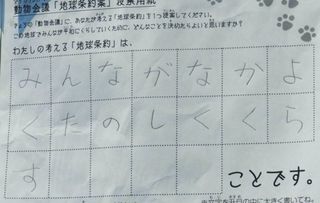 動物会議「地球条約案」投票用紙
『動物会議』に、あなたが考える「地球条約」を1つ提案してください。
この地球でみんなが平和にくらしていくために、どんなことを決めたらよいと思いますか?
わたしの考える「地球条約」は、
みんながなかよ
くたのしくくら
す
ことです。
中に大きく書いてね。